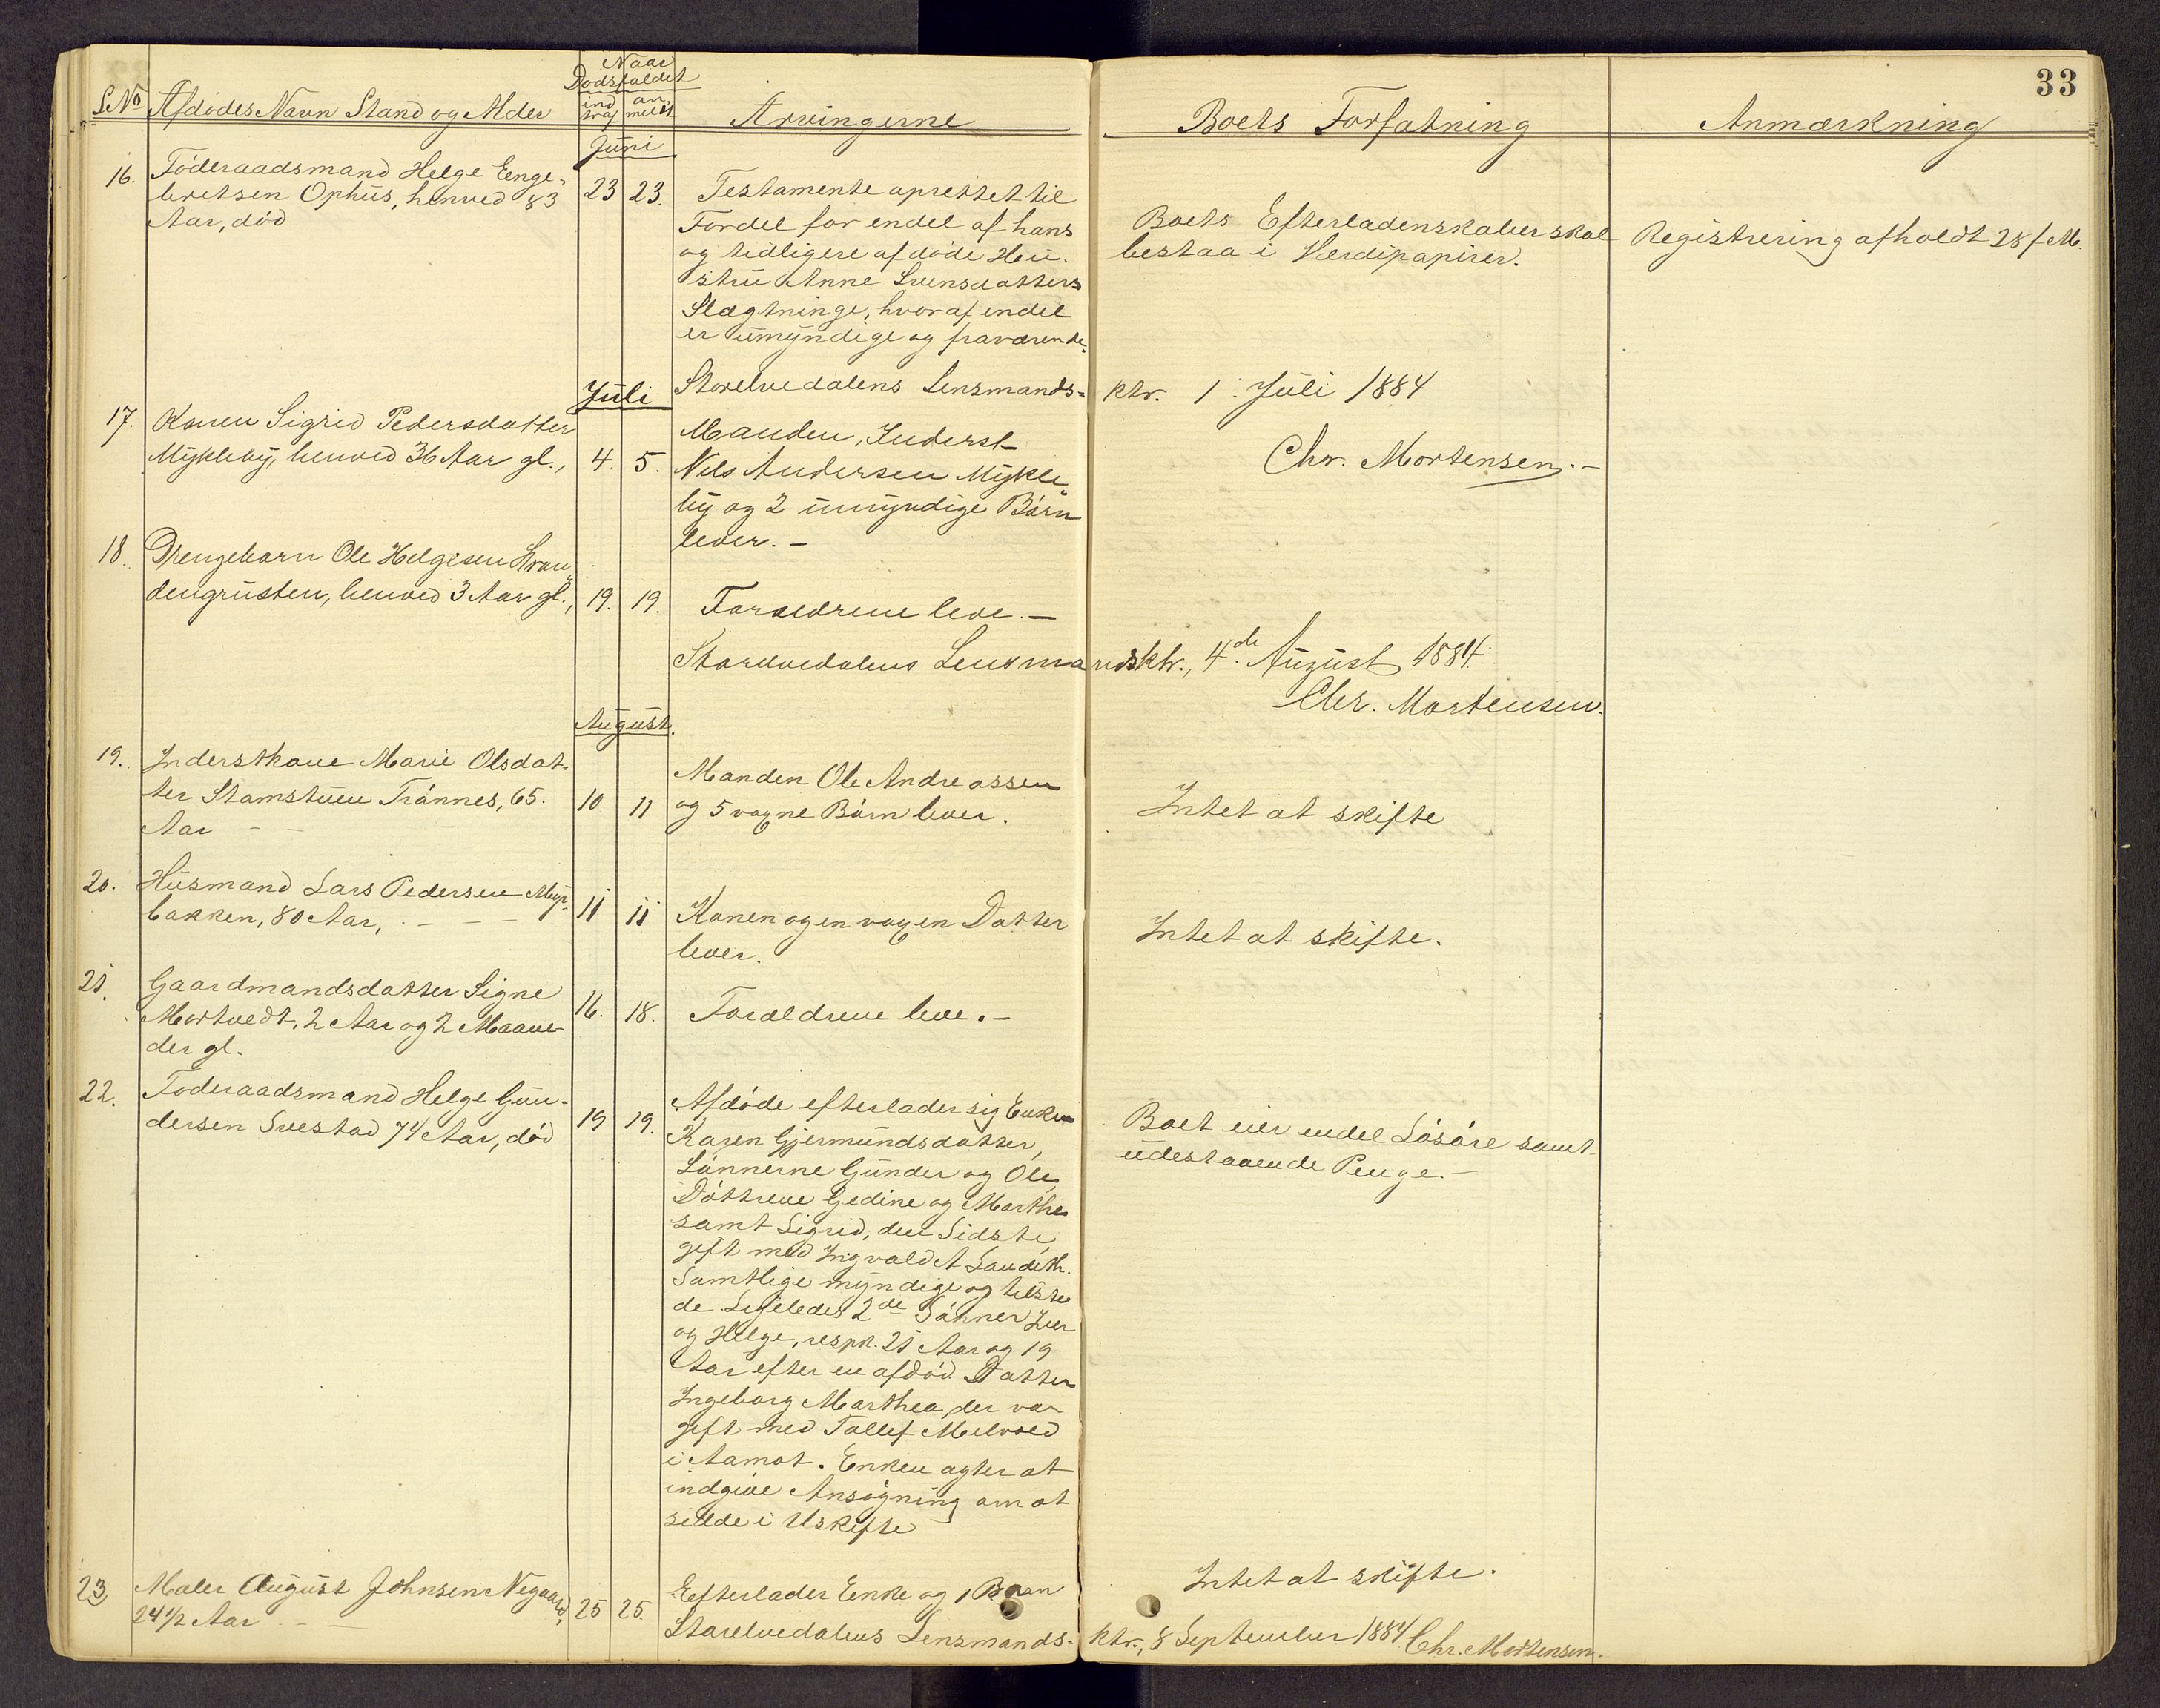 33
Naar
Dødsfaldet
LNo Afdødes Navn Stand og Alder
ind traf
an meldt
Arvingerne
Boets Forfatning
Anmærkning
Juni
16. Föderaadsmand Helge Enge-
bretsen Ophus, henved 83
Aar, död
23 23.
Testamente oprettet til
Fordel for endel af hans
og tidligere afdöde Hu-
stru Anne Svensdatters
Slægtninge, hvoraf endel
er umyndige og fraværende.
Boets Efterladenskaber skal
bestaa i Værdipapirer.
Registrering afholdt 28/ f.M.
Storelvedalens Lensmands-
ktr. 1 Juli 1884
Chr. Mortensen.-
Juli
17. Karen Sigrid Pedersdatter
Mykleby, henved 36 Aar gl.,
4. 5.
Manden, Inderst
Nils Andersen Mykle
by og 2 umyndige Börn
lever. -
18. Drengebarn Ole Helgesen Stran
dengrusten, henved 3 Aar gl.,
19. 19.
Forældrene leve. -
Storelvedalens Lensmandsktr., 4de August 1884.
Chr. Mortensen.
August.
19. Inderstkone Marie Olsdat-
ter Stamstuen Trönnes, 65.
Aar - -
10 11
Manden Ole Andreassen
og 5 voxne Börn lever.
Intet at skifte
20. Husmand Lars Pedersen Myr-
bakken, 80 Aar, - - -
11 11
Konen og en voxen Datter
lever.
Intet at skifte.
21. Gaardmandsdatter Signe
Mortvedt, 2 Aar og 2 Maane-
der gl.
16. 18.
Forældrene leve. -
22. Föderaadsmand Helge Gun-
dersen Svestad 74 Aar, död
19 19.
Afdöde efterlader sig Enken
Karen Gjermundsdatter,
Sönnerne Gunder og Ole,
Döttrene Gedine og Marthe
samt Sigrid, den Sidste
gift med Ingvald A Sandeth.
Samtlige myndige og tilste
de. Ligeledes 2de Sönner Iver
og Helge, resp. 21 Aar og 19
Aar efter en afdöd Datter
Ingeborg Marthea, der var
gift med Tollef Melvold
i Aamot. Enken agter at
indgive Ansögning om at
sidde i Uskifte
Boet eier endel Lösöre samt
udestaaende Penge. -
23 Maler August Johnsen Negaard,
24 1/2 Aar - -
25 25.
Efterlader Enke og 1 Barn
Intet at skifte.
Storelvedalens Lensmands-
ktr., 8 September 1884 Chr. Mortensen.